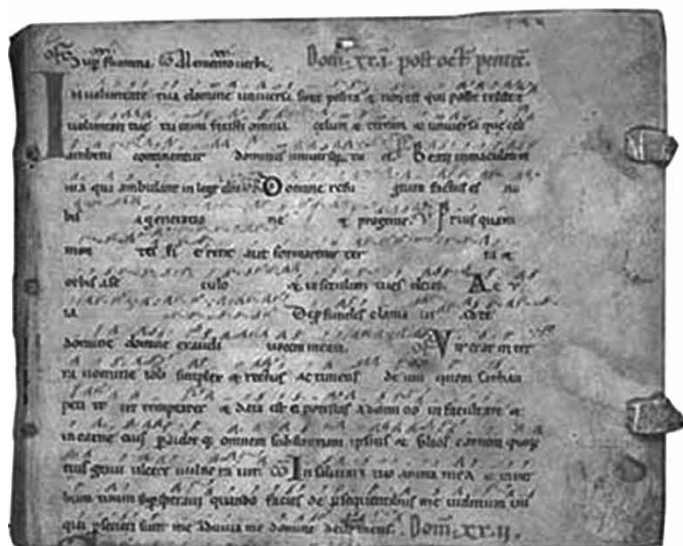 Sup flumina Memento verbi. Dom. xxi. post oct. pentec.
In voluntate tua domine universa sunt posita & non est qui possit resistere
voluntati tue tu enim fecisti omnia celum & terram & universa que celi
ambitu continentur dominus universorum tu es. Beati inmaculati in
via qui ambulant in lege domini Domine refu gium factus es no
bis a generatio ne & progenie. Prius quam
mon tes fi erent aut formaretur ter ra &
orbis a se culo & in seculum tu es deus. Ae v
ia De profundis clamavi ad te
domine domine exaudi vocem meam. Vir erat in ter
ra nomine iob simplex & rectus ac timens de um quem sathan
peti it ut temptaret & data est ei potestas a domino in facultate &
in carne eius omnem substantiam ipsius & filios carnem quoque
eius gravi ulcere vulne ra vit In salutari tuo anima mea & in ver
bum tuum speravi quando facies de persequentibus me iudicium iniqui
persecuti sunt me adiuva me domine deus meus. Dom. xxii.